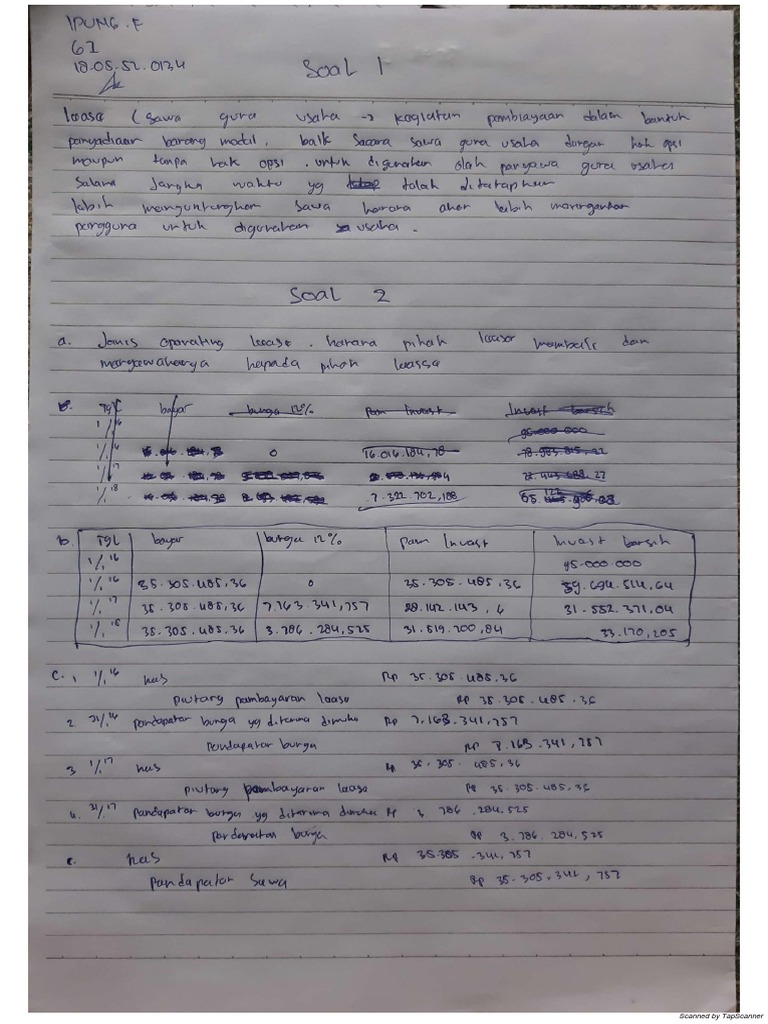 IPUNG.F
6I
18.05.52.0134
Soal 1
lease (sewa guna usaha → kegiatan pembiayaan dalam bentuk
penyediaan barang modal, baik secara sewa guna usaha dengan hak opsi
maupun tanpa hak opsi. untuk digunakan oleh penyewa guna usaha
selama jangka waktu yg telah ditetapkan
lebih menguntungkan sewa karena akan lebih meringankan
pengguna untuk digunakan usaha.
Soal 2
a. Jenis operating lease. karena pihak lessor membeli dan
menyewakannya kepada pihak lessee
b. Tgl bayar bunga 12% pem Invest Invest bersih
1/1 16 95.000.000
1/1 16 0 16.016.184,78
1/1 17
1/1 18 7.322.702,188
b. TGL bayar bunga 12% pem Invest Invest bersih
1/1 16 95.000.000
1/1 16 35.305.485,36 0 35.305.485,36 59.694.514,64
1/1 17 35.305.485,36 7.163.341,757 28.142.143,6 31.552.371,04
1/1 18 35.305.485,36 3.786.284,525 31.519.200,84 33.170,205
C. 1, 1/1 16 kas Rp 35.305.485,36
piutang pembayaran lease Rp 35.305.485,36
2. 31/12 16 pendapatan bunga yg diterima dimuka Rp 7.163.341,757
pendapatan bunga Rp 7.163.341,757
3 1/1 17 kas Rp 35.305.485,36
piutang pembayaran lease Rp 35.305.485,36
4. 31/12 17 pendapatan bunga yg diterima dimuka Rp 3.786.284,525
pendapatan bunga Rp 3.786.284,525
e. kas Rp 35.305.341,757
pendapatan sewa Rp 35.305.341,757
Scanned by TapScanner